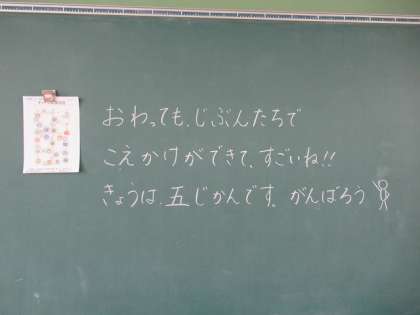 おわっても、じぶんたちで
こえかけができて、すごいね!!
きょうは、五じかんです。がんばろう